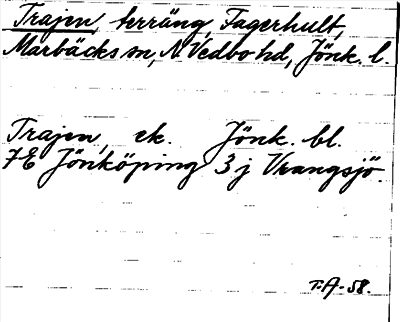 Trajen, terräng, Fagerhult,
Marbäcks sn, N Vedbo hd, Jönk. l.
Trajen, ek. Jönk. bl.
7E Jönköping 3 j Vrangsjö.
T.A-58.